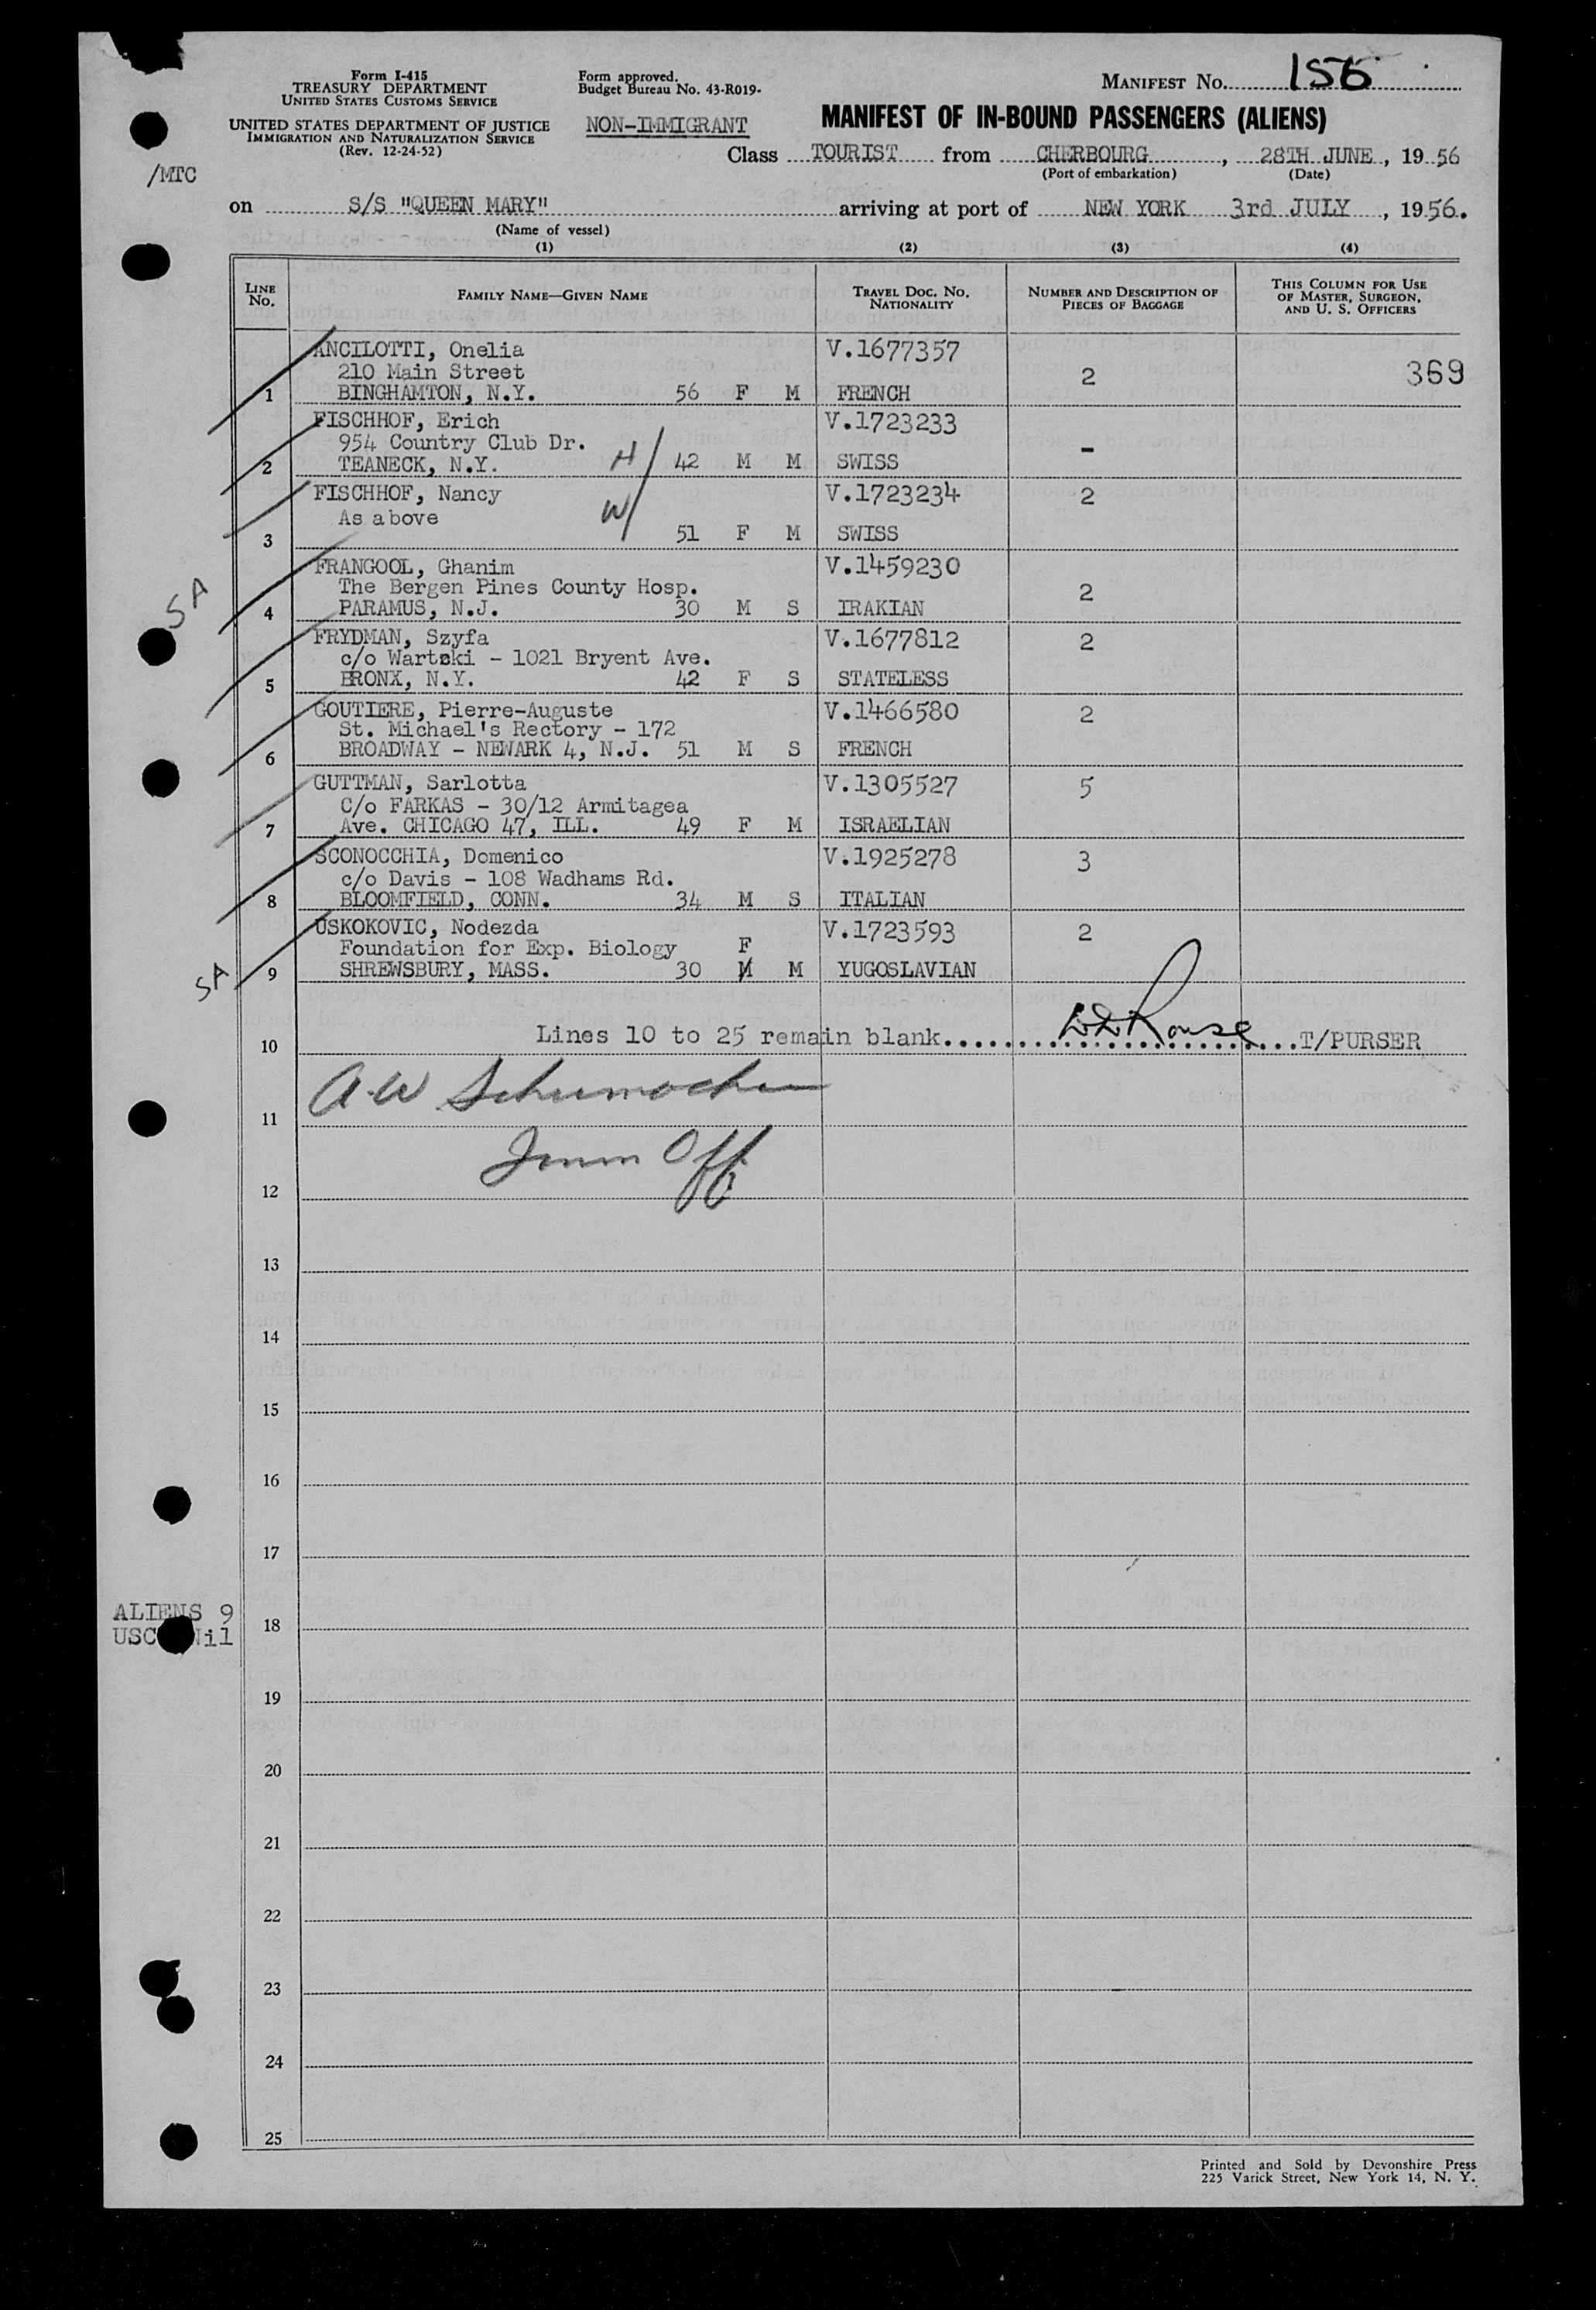 Form I-415
TREASURY DEPARTMENT
UNITED STATES CUSTOMS SERVICE
UNITED STATES DEPARTMENT OF JUSTICE
IMMIGRATION AND NATURALIZATION SERVICE
(Rev. 12-24-52)
/MTC
Form approved.
Budget Bureau No. 43-R019-
NON-IMMIGRANT
MANIFEST No. 156
MANIFEST OF IN-BOUND PASSENGERS (ALIENS)
Class TOURIST from CHERBOURG, 28TH JUNE, 1956
(Port of embarkation) (Date)
on S/S "QUEEN MARY" arriving at port of NEW YORK 3rd JULY, 1956.
(Name of vessel)
(1) (2) (3) (4)
LINE No. FAMILY NAME—GIVEN NAME TRAVEL DOC. NO. NATIONALITY NUMBER AND DESCRIPTION OF PIECES OF BAGGAGE THIS COLUMN FOR USE OF MASTER, SURGEON, AND U. S. OFFICERS
ANCILOTTI, Onelia V.1677357
210 Main Street 2 369
1 BINGHAMTON, N.Y. 56 F M FRENCH
FISCHHOF, Erich V.1723233
954 Country Club Dr. H -
2 TEANECK, N.Y. 42 M M SWISS
FISCHHOF, Nancy V.1723234 2
As above W
3 51 F M SWISS
FRANGOOL, Ghanim V.1459230
SA The Bergen Pines County Hosp. 2
4 PARAMUS, N.J. 30 M S IRAKIAN
FRYDMAN, Szyfa V.1677812 2
c/o Wartski - 1021 Bryent Ave.
5 BRONX, N.Y. 42 F S STATELESS
GOUTIERE, Pierre-Auguste V.1466580 2
St. Michael's Rectory - 172
6 BROADWAY - NEWARK 4, N.J. 51 M S FRENCH
GUTTMAN, Sarlotta V.1305527 5
C/o FARKAS - 30/12 Armitagea
7 Ave. CHICAGO 47, ILL. 49 F M ISRAELIAN
SCONOCCHIA, Domenico V.1925278 3
c/o Davis - 108 Wadhams Rd.
8 BLOOMFIELD, CONN. 34 M S ITALIAN
USKOKOVIC, Nodezda V.1723593 2
Foundation for Exp. Biology F
SA 9 SHREWSBURY, MASS. 30 M M YUGOSLAVIAN
10 Lines 10 to 25 remain blank Rouse T/PURSER
11 A.W Schumacher
12 Imm Off
13
14
15
16
17
ALIENS 9
18
USC Nil
19
20
21
22
23
24
25
Printed and Sold by Devonshire Press
225 Varick Street, New York 14, N. Y.